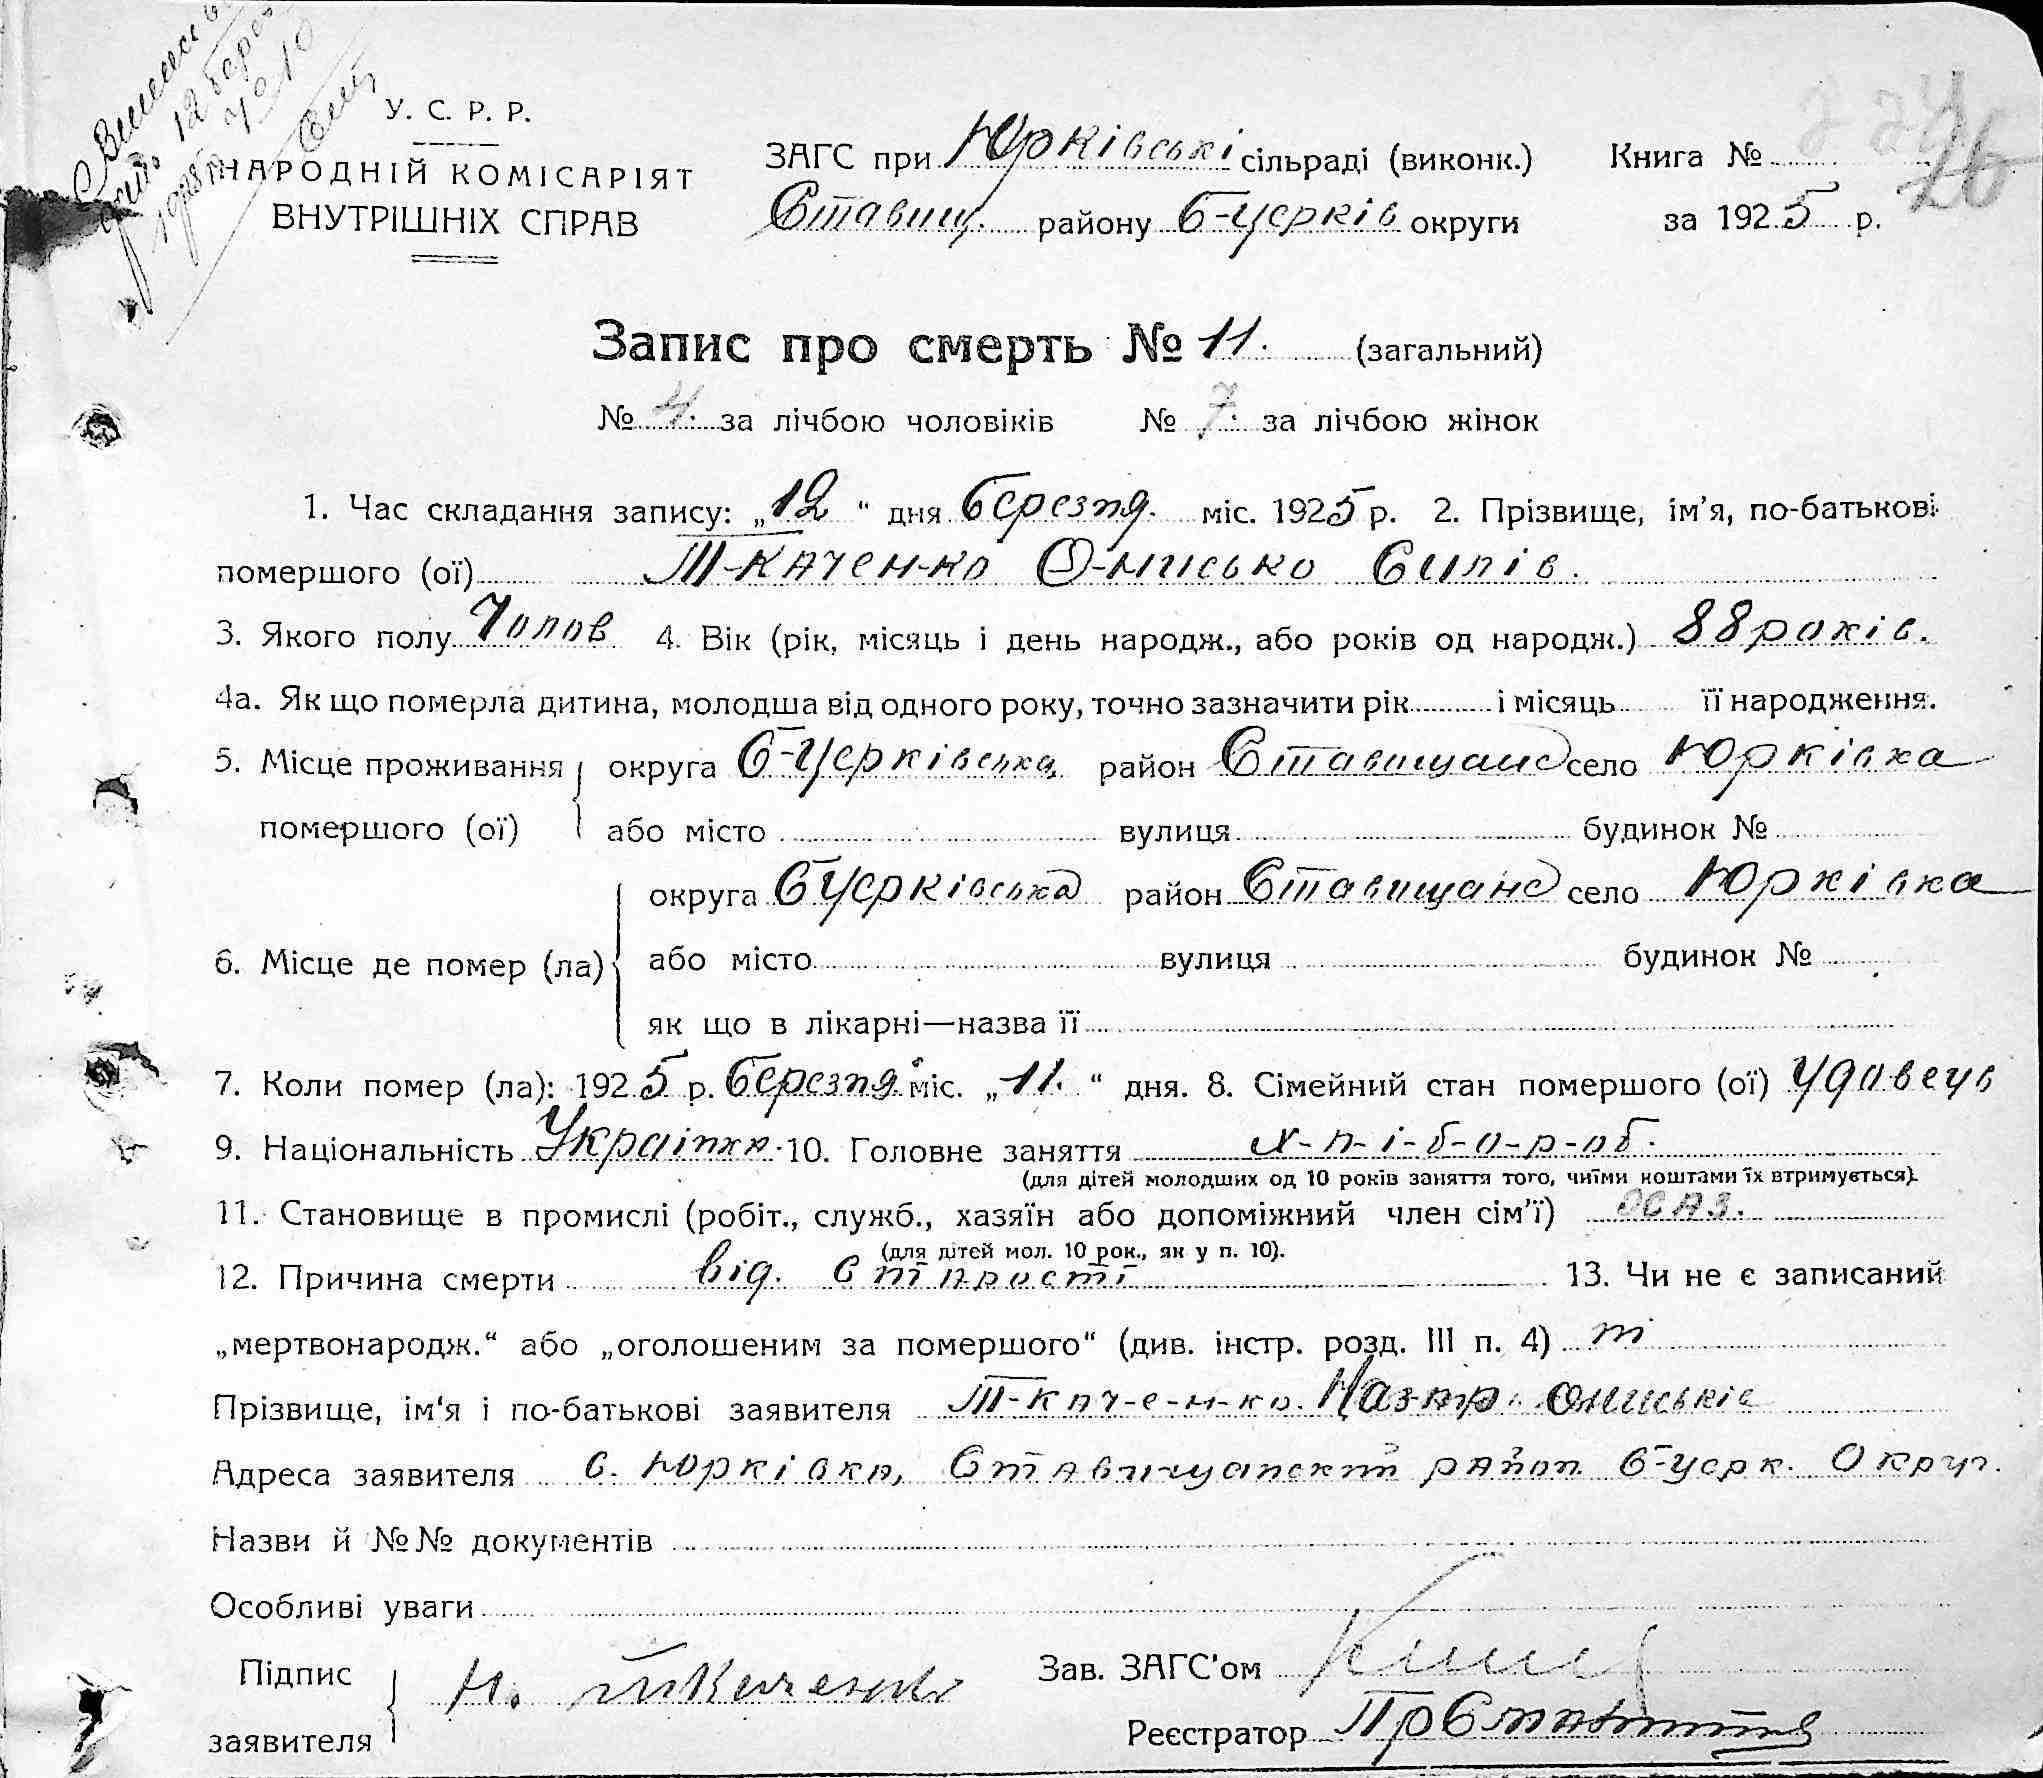 12
№ 10
У. С. Р. Р.
НАРОДНІЙ КОМІСАРІЯТ
ВНУТРІШНІХ СПРАВ
ЗАГС при Юрківські сільраді (виконк.) Книга № 26
Ставищ. району Б-Церків округи за 1925 р.
Запис про смерть № 11. (загальний)
№ 4. за лічбою чоловіків № 7. за лічбою жінок
1. Час складання запису: „12“ дня березня. міс. 1925 р. 2. Прізвище, ім'я, по-батькові
помершого (ої) Т-качен-ко О-нисько Силів.
3. Якого полу Чолов 4. Вік (рік, місяць і день народж., або років од народж.) 88 років.
4а. Як що померла дитина, молодша від одного року, точно зазначити рік і місяць її народження.
5. Місце проживання округа Б-Церківська район Ставищанс село Юрківка
помершого (ої) або місто вулиця будинок №
округа Бцерківська район Ставищанс село Юрківка
6. Місце де помер (ла) або місто вулиця будинок №
як що в лікарні—назва її
7. Коли помер (ла): 1925 р. березня міс. „11.“ дня. 8. Сімейний стан помершого (ої) удовець
9. Національність Україн 10. Головне заняття х-л-і-б-о-р-об.
(для дітей молодших од 10 років заняття того, чиїми коштами їх втримується).
11. Становище в промислі (робіт., служб., хазяїн або допоміжний член сім'ї) хаз.
(для дітей мол. 10 рок., як у п. 10).
12. Причина смерти від. старості 13. Чи не є записаний
„мертвонародж.“ або „оголошеним за помершого“ (див. інстр. розд. III п. 4) ні
Прізвище, ім'я і по-батькові заявителя Т-кач-е-н-ко. Назар. Ониськів
Адреса заявителя с. Юрківка, Ставищанский район Б-церк. Округ.
Назви й №№ документів
Особливі уваги
Підпис Н. Ткаченко Зав. ЗАГС'ом
заявителя Реєстратор